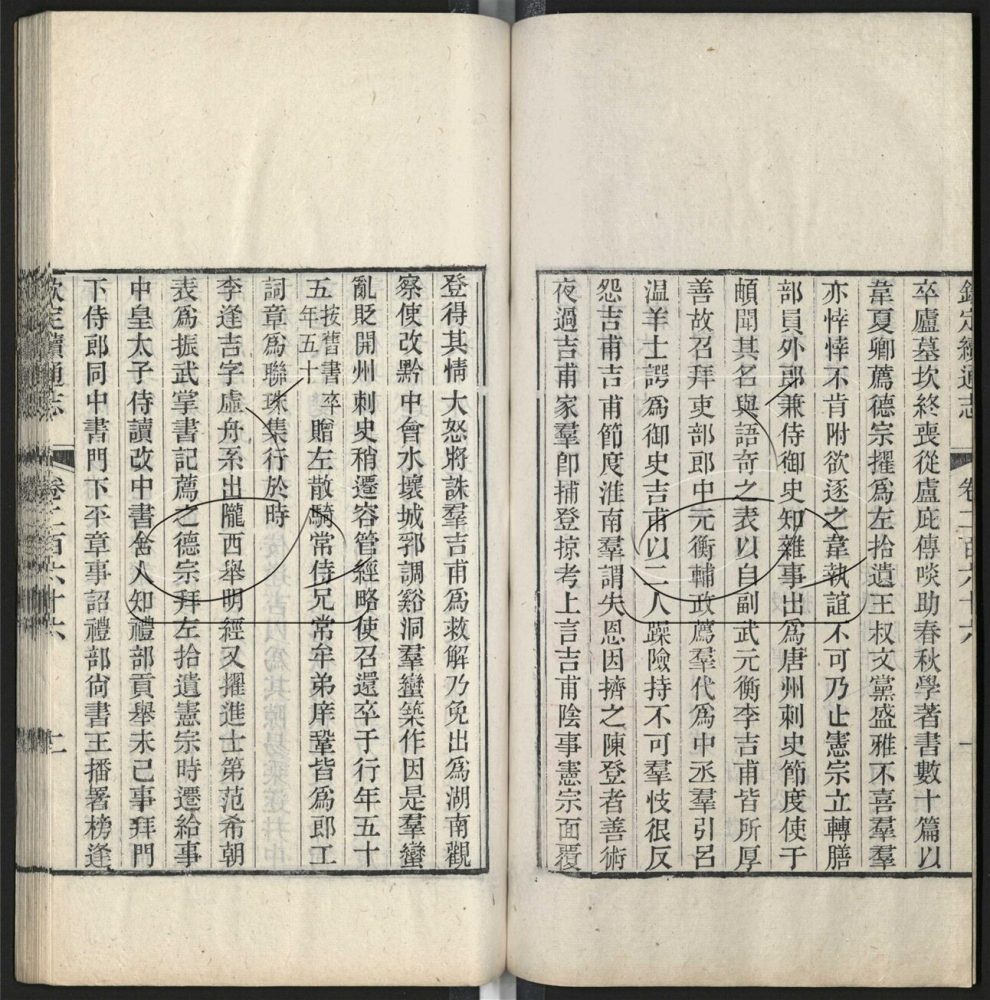 欽定續通志 卷二百六十六 一
卒廬墓坎終喪從盧庇傳啖助春秋學著書數十篇以
韋夏卿薦德宗擢爲左拾遺王叔文黨盛雅不喜羣羣
亦悻悻不肯附欲逐之韋執誼不可乃止憲宗立轉膳
部員外郎兼侍御史知雜事出爲唐州刺史節度使于
頔聞其名與語奇之表以自副武元衡李吉甫皆所厚
善故召拜吏部郎中元衡輔政薦羣代爲中丞羣引呂
温羊士諤爲御史吉甫以二人躁險持不可羣忮很反
怨吉甫吉甫節度淮南羣謂失恩因擠之陳登者善術
夜過吉甫家羣卽捕登掠考上言吉甫陰事憲宗面覆
登得其情大怒將誅羣吉甫爲救解乃免出爲湖南觀
察使改黔中會水壞城郛調谿洞羣蠻築作因是羣蠻
亂貶開州刺史稍遷容管經略使召還卒于行年五十
五按舊書卒年五十贈左散騎常侍兄常牟弟庠鞏皆爲郎工
詞章爲聯珠集行於時
李逢吉字虛舟系出隴西舉明經又擢進士第范希朝
表爲振武掌書記薦之德宗拜左拾遺憲宗時遷給事
中皇太子侍讀改中書舍人知禮部貢舉未已事拜門
下侍郎同中書門下平章事詔禮部尚書王播署榜逢
欽定續通志 卷二百六十六